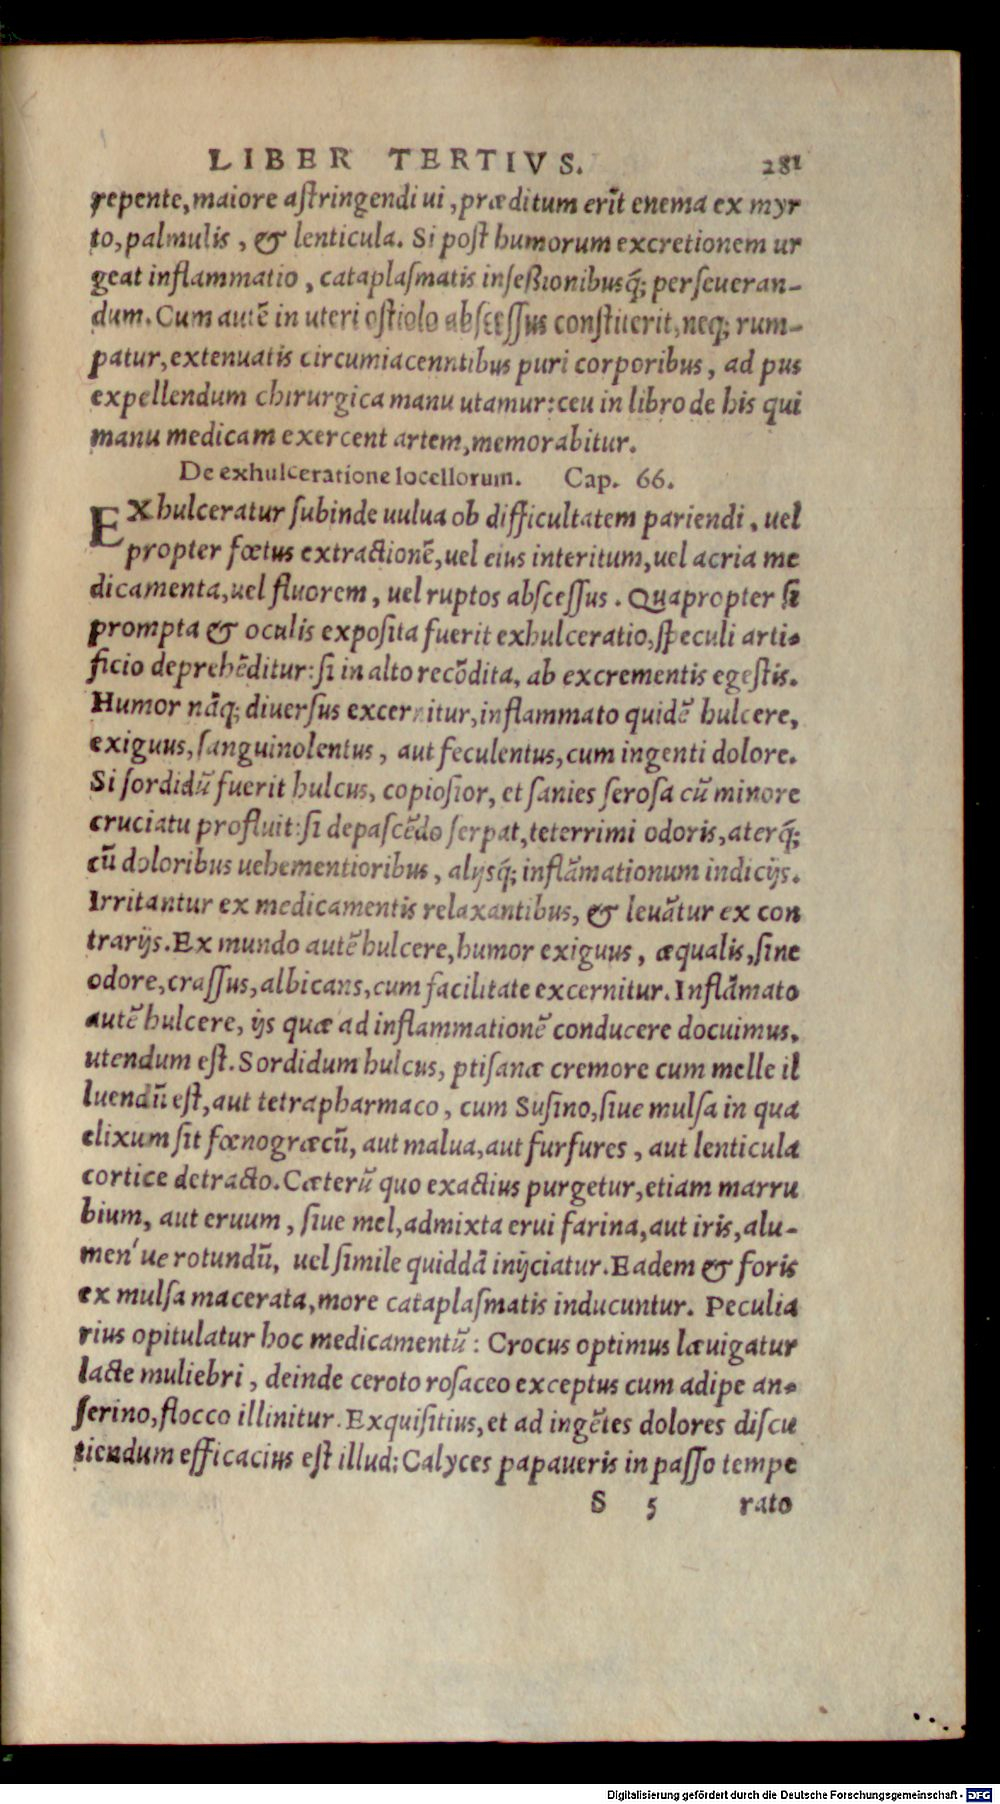 LIBER TERTIVS. 281
repente, maiore aſtringendi ui, præditum erit enema ex myr
to, palmulis, & lenticula. Si poſt humorum excretionem ur
geat inflammatio, cataplaſmatis inſeßionibusq́; perſeueran-
dum. Cum autē in uteri oſtiolo abſceſſus conſtiterit, neq; rum-
patur, extenuatis circumiacenntibus puri corporibus, ad pus
expellendum chirurgica manu utamur: ceu in libro de his qui
manu medicam exercent artem, memorabitur.
De exhulceratione locellorum. Cap. 66.
EXhulceratur ſubinde uulua ob difficultatem pariendi, uel
propter fœtus extractionē, uel eius interitum, uel acria me
dicamenta, uel fluorem, uel ruptos abſceſſus. Quapropter ſi
prompta & oculis expoſita fuerit exhulceratio, ſpeculi arti-
ficio deprehēditur: ſi in alto recōdita, ab excrementis egeſtis.
Humor nāq; diuerſus excernitur, inflammato quidē hulcere,
exiguus, ſanguinolentus, aut feculentus, cum ingenti dolore.
Si ſordidū fuerit hulcus, copioſior, et ſanies ſeroſa cū minore
cruciatu profluit: ſi depaſcēdo ſerpat, teterrimi odoris, aterq́;
cū doloribus uehementioribus, alijsq́; inflāmationum indicijs.
Irritantur ex medicamentis relaxantibus, & leuātur ex con
trarijs. Ex mundo autē hulcere, humor exiguus, æqualis, ſine
odore, craſſus, albicans, cum facilitate excernitur. Inflāmato
autē hulcere, ijs quæ ad inflammationē conducere docuimus,
utendum eſt. Sordidum hulcus, ptiſanæ cremore cum melle il
luendū eſt, aut tetrapharmaco, cum Suſino, ſiue mulſa in qua
elixum ſit fœnogræcū, aut malua, aut furfures, aut lenticula
cortice detracto. Cæterū quo exactius purgetur, etiam marru
bium, aut eruum, ſiue mel, admixta erui farina, aut iris, alu-
men'ue rotundū, uel ſimile quiddā inijciatur. Eadem & foris
ex mulſa macerata, more cataplaſmatis inducuntur. Peculia
rius opitulatur hoc medicamentū: Crocus optimus læuigatur
lacte muliebri, deinde ceroto roſaceo exceptus cum adipe an-
ſerino, flocco illinitur. Exquiſitius, et ad ingētes dolores diſcu
tiendum efficacius eſt illud: Calyces papaueris in paſſo tempe
S 5 rato
Digitalisierung gefördert durch die Deutsche Forschungsgemeinschaft - DFG